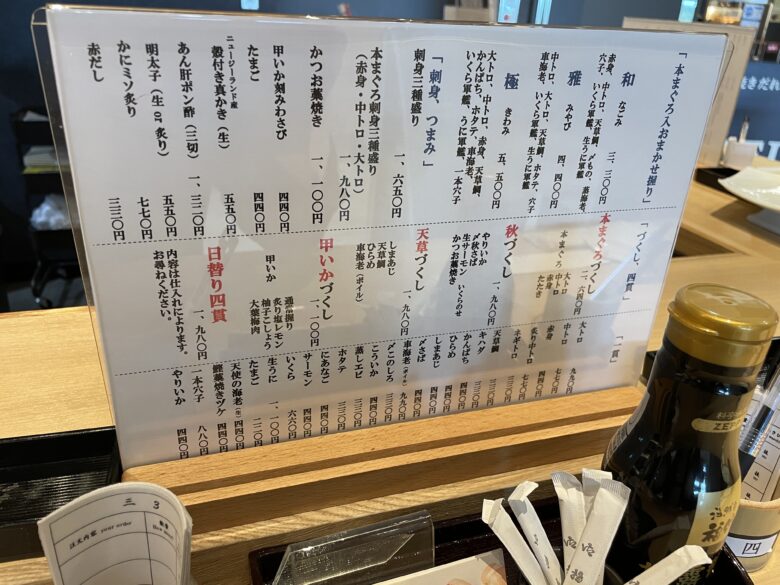 「本まぐろ入おまかせ握り」
和 なごみ 三、三〇〇円
赤身、中トロ、天草鯛、〆もの、蒸海老、
穴子、いくら軍艦、生うに軍艦
雅 みやび 四、四〇〇円
中トロ、大トロ、天草鯛、ホタテ、穴子
車海老、いくら軍艦、生うに軍艦
極 きわみ 五、五〇〇円
大トロ、中トロ、赤身、天草鯛、
かんぱち、ホタテ、車海老、
いくら軍艦、うに軍艦、一本穴子
「刺身、つまみ」
刺身三種盛り 一、六五〇円
本まぐろ刺身三種盛り
（赤身・中トロ・大トロ） 一、九八〇円
かつお藁焼き 一、一〇〇円
甲いか刻みわさび 四四〇円
たまご 四四〇円
ニュージーランド産
殻付き真かき（生） 五五〇円
あん肝ポン酢（三切） 一、三二〇円
明太子（生or炙り） 五五〇円
かにミソ炙り 七七〇円
赤だし 三三〇円
「づくし、四貫」
本まぐろづくし 二、六四〇円
大トロ
中トロ
本まぐろ 赤身
たたき
秋づくし 一、九八〇円
やりいか
〆秋さば
生サーモン いくらのせ
かつお藁焼き
天草づくし 一、九八〇円
しまあじ
天草鯛
ひらめ
車海老（ボイル）
甲いかづくし 一、一〇〇円
通常握り
甲いか 炙り塩レモン
柚子こしょう
大葉梅肉
日替り四貫 一、九八〇円
内容は仕入れによります。
お尋ねください。
「一貫」
大トロ 九九〇円
中トロ 七七〇円
赤身 四四〇円
炙り中トロ 七七〇円
ネギトロ
天草鯛
キハダ
かんぱち
ひらめ
しまあじ
〆さば
車海老（ボイル） 九九〇円
〆このしろ
こういか
蒸しエビ
ホタテ 三三〇円
にあなご 四四〇円
サーモン 四四〇円
いくら 六六〇円
生うに 一、一〇〇円
たまご 二二〇円
天使の海老（生） 四四〇円
鰹藁焼きヅケ 四四〇円
一本穴子 八八〇円
やりいか 四四〇円
三 3
注文内容 your order
四